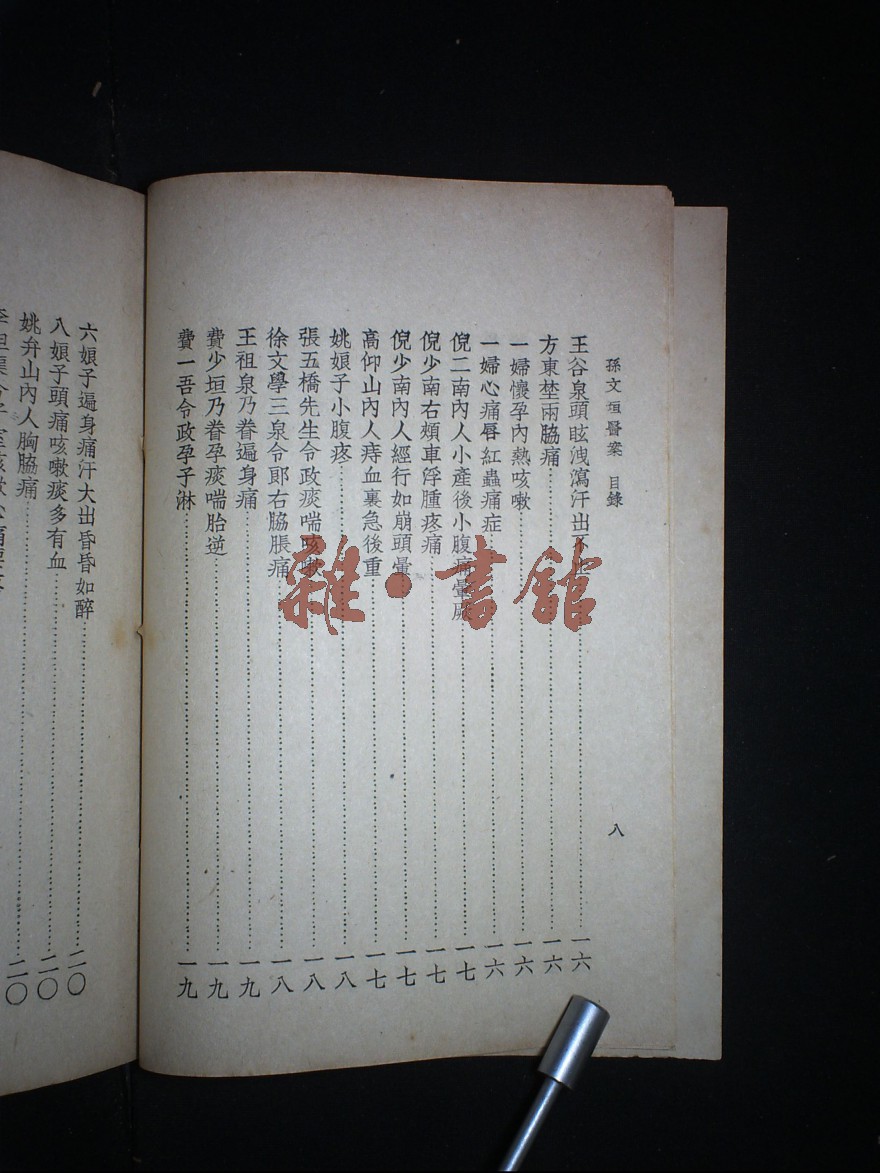 孫文垣醫案 目錄 八
王谷泉頭眩洩瀉汗出不止 一六
方東埜兩脇痛 一六
一婦懷孕內熱咳嗽 一六
一婦心痛唇紅蟲痛症 一六
倪二南內人小產後小腹痛暈厥 一七
倪少南右頰車浮腫疼痛 一七
倪少南內人經行如崩頭暈 一七
高仰山內人痔血裏急後重 一七
姚娘子小腹疼 一八
張五橋先生令政痰喘咳嗽 一八
徐文學三泉令郎右脇脹痛 一八
王祖泉乃眷遍身痛 一九
費少垣乃眷孕痰喘胎逆 一九
費一吾令政孕子淋 一九
六娘子遍身痛汗大出昏昏如醉 二〇
八娘子頭痛咳嗽痰多有血 二〇
姚弁山內人胸脇痛 二〇
雜·書館